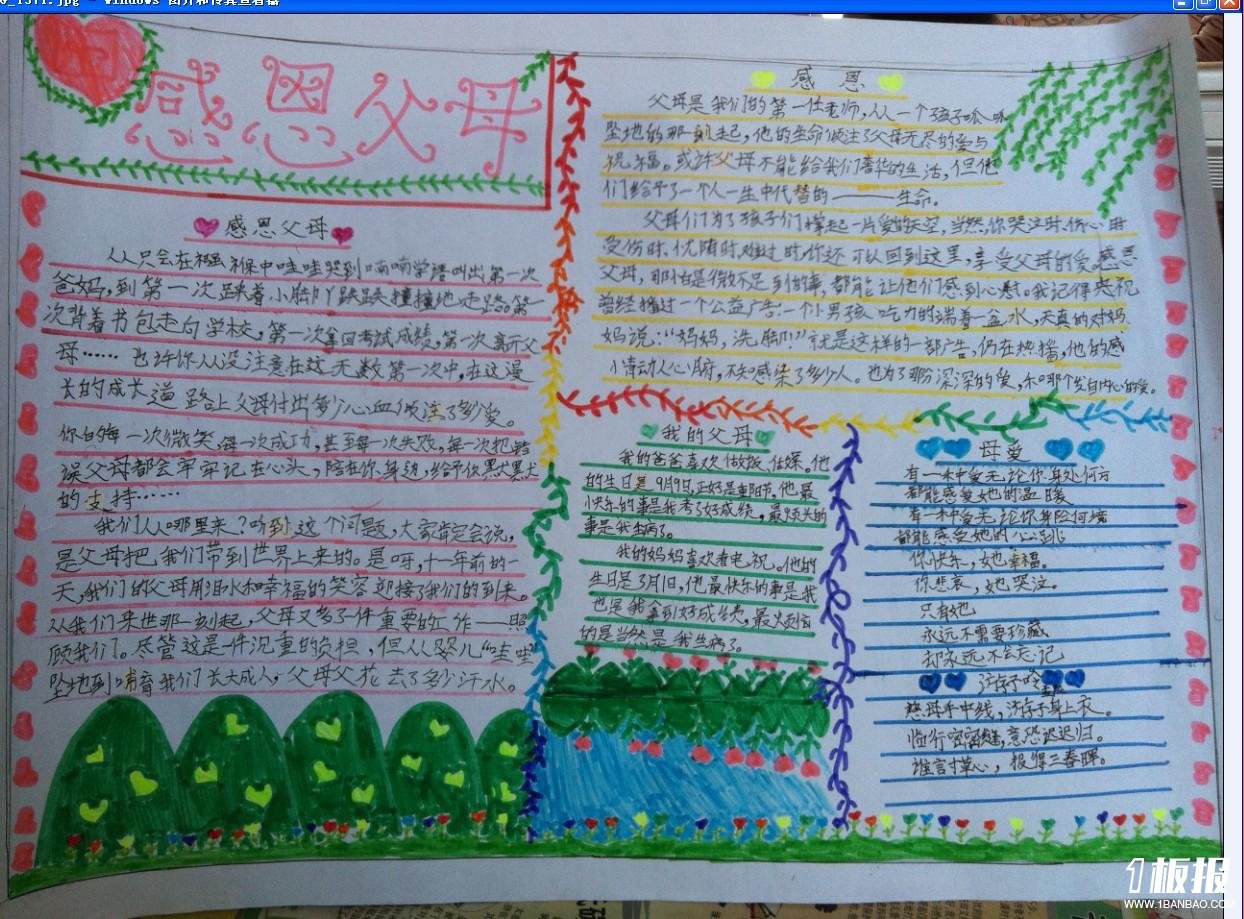 感恩父母
感恩父母
从只会在襁褓中哇哇哭到喃喃学语叫出第一次
爸妈,到第一次踩着小脚丫跌跌撞撞地走路。第一
次背着书包走向学校,第一次拿回考试成绩,第一次离开父
母……也许你从没注意在这无数第一次中,在这漫
长的成长道路上父母付出多少心血倾注了多少爱。
你的每一次微笑,每一次成功,甚至每一次失败,每一次把错
误父母都会牢牢记在心头,陪在你身边,给予你默默
的支持……
我们从哪里来?听到这个问题,大家肯定会说,
是父母把我们带到世界上来的。是呀,十一年前的一
天,我们的父母用泪水和幸福的笑容迎接了我们的到来。
从我们来世那一刻起,父母又多了件重要的工作——照
顾我们。尽管这是件沉重的负担,但从婴儿“哇哇”
坠地到哺育我们长大成人,父母父花去了多少汗水。
感恩
父母是我们的第一任老师,从一个孩子呱呱
坠地的那一刻起,他的生命倾注了父母无尽的爱与
祝福。或许父母不能给我们奢华的生活,但他
们给予了一个人一生中代替的——生命。
父母们为了孩子们撑起一片爱的天空,当然,你哭泣时,伤心时
受伤时,忧随时,难过时,你还可以回到这里,享受父母的爱,感恩
父母,那怕是微不足到的事,都能让他们感到心慰。我记得央视
曾经播过一个公益广告:一个小男孩吃力的端着一盆水,天真的对妈
妈说:“妈妈,洗脚!”就是这样的一部广告,仍在热播,他的感
小情动人心府,不知感染了多少人。也为了那分深深的爱,和那个发自内心的爱。
我的父母
我的爸爸喜欢做饭、住嫘。他
的生日是9月9日,正好是重阳节,他最
快乐的事是我考了好成绩,最烦头的
事是我生病了。
我的妈妈喜欢看电视。他的
生日是3月1日,他最快乐的事是我
也是我拿到好成绩,最烦恼
的是当然是我生病了。
母爱
有一种爱无论你身处何方
都能感受她的温暖
有一种爱无论你身临何境
都能感受她的心跳
你快乐,她幸福。
你悲哀,她哭泣。
只有她
永远不需要珍藏
却永远不会忘记
游子吟
慈母手中线,游子身上衣。
临行密密缝,意恐迟迟归。
谁言寸草心,报得三春晖。
1板报
WWW.1BANBAO.COM